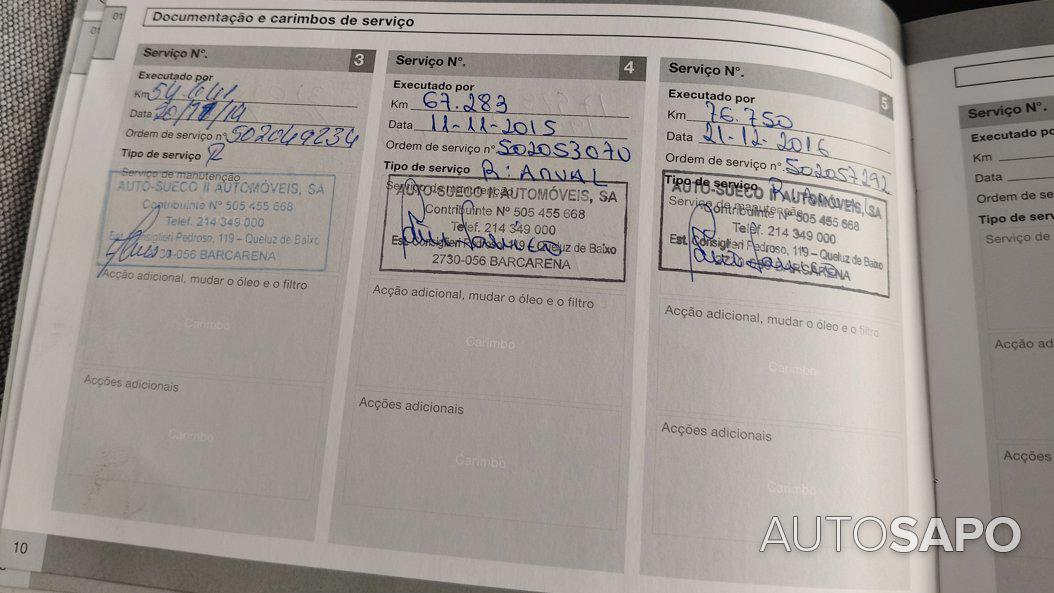 01
01
Documentação e carimbos de serviço
Serviço Nº. 3
Executado por
Km 54.441
Data 20/11/14
Ordem de serviço nº 502049234
Tipo de serviço R
Serviço de manutenção
AUTO-SUECO II AUTOMÓVEIS, SA
Contribuinte Nº 505 455 668
Telef. 214 349 000
Est. Consiglieri Pedroso, 119 - Queluz de Baixo
2730-056 BARCARENA
Acção adicional, mudar o óleo e o filtro
Carimbo
Acções adicionais
Carimbo
Serviço Nº. 4
Executado por
Km 67.283
Data 11-11-2015
Ordem de serviço nº 502053070
Tipo de serviço R: ANUAL
Serviço de manutenção
AUTO-SUECO II AUTOMÓVEIS, SA
Contribuinte Nº 505 455 668
Telef. 214 349 000
Est. Consiglieri Pedroso, 119 - Queluz de Baixo
2730-056 BARCARENA
Acção adicional, mudar o óleo e o filtro
Carimbo
Acções adicionais
Carimbo
Serviço Nº. 5
Executado por
Km 76.750
Data 21-12-2016
Ordem de serviço nº 502057292
Tipo de serviço
Serviço de manutenção
AUTO-SUECO II AUTOMÓVEIS, SA
Contribuinte Nº 505 455 668
Telef. 214 349 000
Est. Consiglieri Pedroso, 119 - Queluz de Baixo
BARCARENA
Acção adicional, mudar o óleo e o filtro
Carimbo
Acções adicionais
Carimbo
Serviço Nº.
Executado po
Km
Data
Ordem de se
Tipo de serv
Serviço de
Acção ad
Acções
10
AUTOSAPO